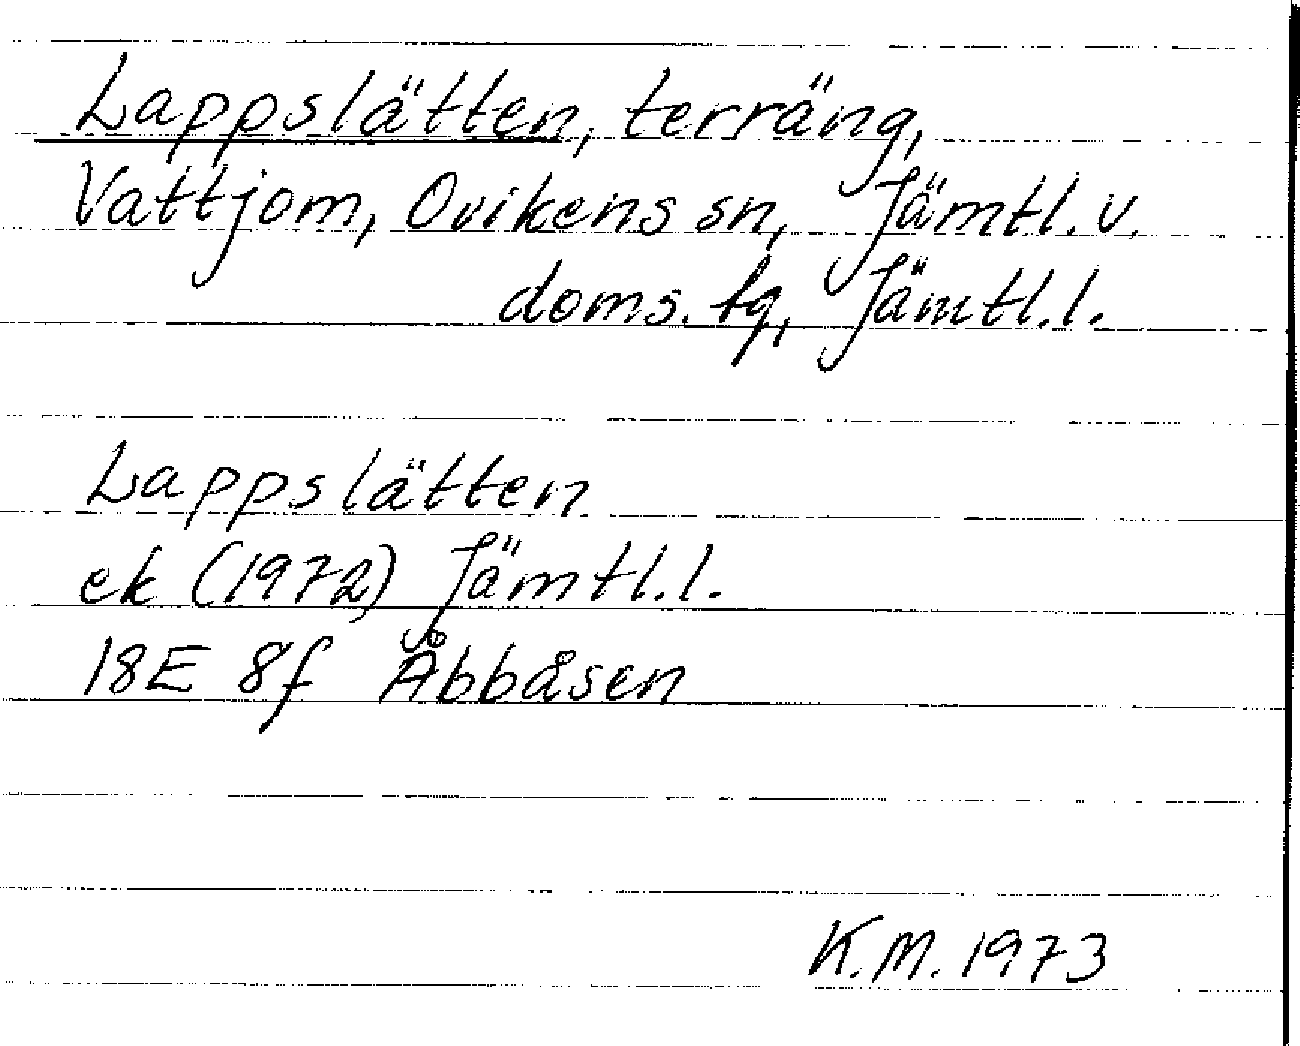 Lappslätten, terräng,
Vattjom, Ovikens sn, Jämtl. v.
doms. fq, Jämtl.l.
Lappslätten
ek (1972) Jämtl.l.
18E 8f Åbbåsen
K.M. 1973